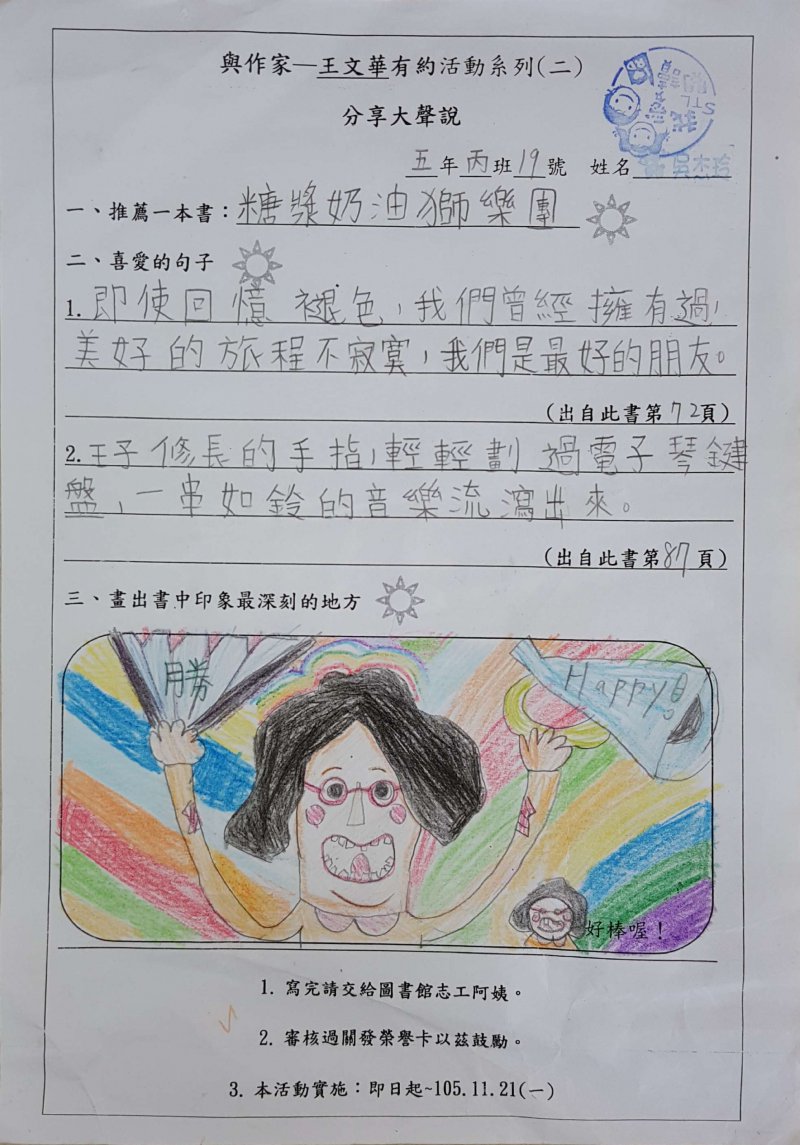 與作家—王文華有約活動系列(二)
分享大聲說
五年丙班19號 姓名
一、推薦一本書：糖漿奶油獅樂團
二、喜愛的句子
1.即使回憶褪色，我們曾經擁有過，
美好的旅程不寂寞，我們是最好的朋友。
(出自此書第72頁)
2.王子修長的手指，輕輕劃過電子琴鍵
盤，一串如鈴的音樂流瀉出來。
(出自此書第87頁)
三、畫出書中印象最深刻的地方
勝
Happy
好棒喔！
1. 寫完請交給圖書館志工阿姨。
2. 審核過關發榮譽卡以茲鼓勵。
3. 本活動實施：即日起~105.11.21(一)